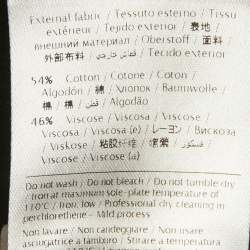 External fabric / Tessuto esterno / Tissu
extérieur / Tejido exterior / 表地 /
внешний материал / Oberstoff / 面料 /
外部布料 / قماش خارجي / Tecido exterior
54% Cotton / Cotone / Coton /
Algodón / 綿 / Хлопок / Baumwolle /
棉 / 棉 / قطن / Algodão
46% Viscose / Viscosa / Viscose /
Viscosa / Viscosa (e) / レーヨン / Вискоза
/ Viskose / 粘胶纤维 / 嫘縈 / فسكوز /
Viscose / Viscosa (a)
Do not wash / Do not bleach / Do not tumble dry
/ Iron at maximum sole-plate temperature of
110°C / Iron, low / Professional dry cleaning in
perchlorethene - Mild process
Non lavare / Non candeggiare / Non usare
asciugatrice a tamburo / Stirare a temperatura